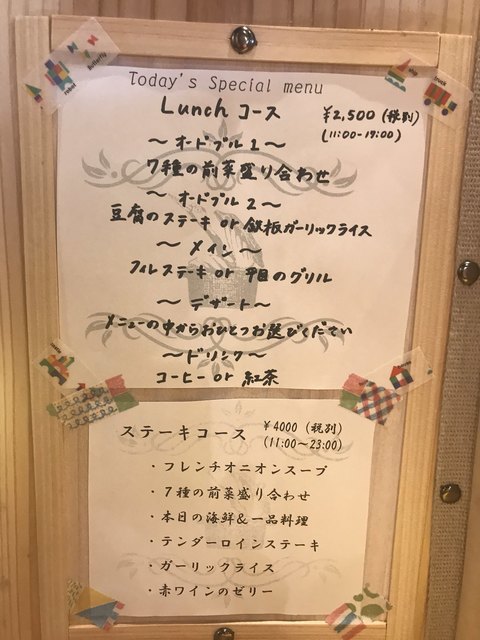 Today's Special menu
Lunch コース
¥2,500 (税別)
(11:00-17:00)
～オードブル1～
7種の前菜盛り合わせ
～オードブル2～
豆腐のステーキ or 鉄板ガーリックライス
～メイン～
フィレステーキ or 平目のグリル
～デザート～
メニューの中からおひとつお選びください
～ドリンク～
コーヒー or 紅茶
ステーキコース
¥4000 (税別)
(11:00～23:00)
・フレンチオニオンスープ
・7種の前菜盛り合わせ
・本日の海鮮&一品料理
・テンダーロインステーキ
・ガーリックライス
・赤ワインのゼリー
robot
Butterfly
truck